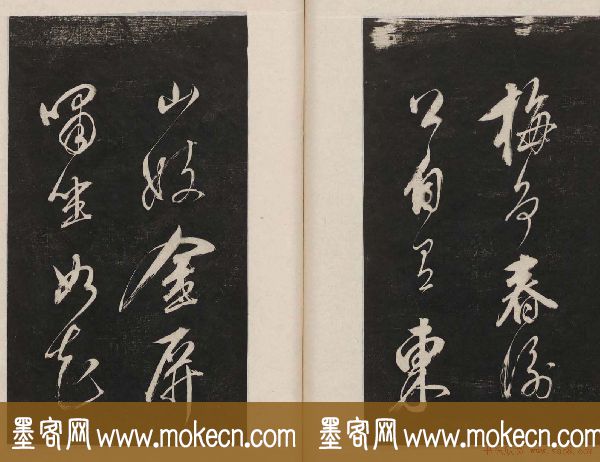 梅争春謝
公自有東
山妓金屏
嘯坐如花
墨客网 www.mokecn.com
墨客网 www.mokecn.com